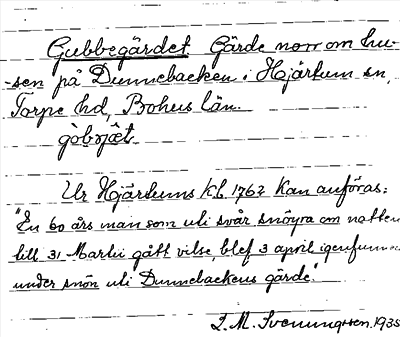 Gubbegärdet Gärde norr om hu-
-sen på Dunnebacken i Hjärtum sn,
Torpe hd, Bohus län.
gòbɔjæt.
Ur Hjärtums kb. 1762 kan anföras:
"En 60 års man som uti svår snöyra om natten
till 31 Martii gått vilse, blef 3 april igenfunnen
under snön uti Dunnebackens gärde."
L. M. Svenungsson. 1935